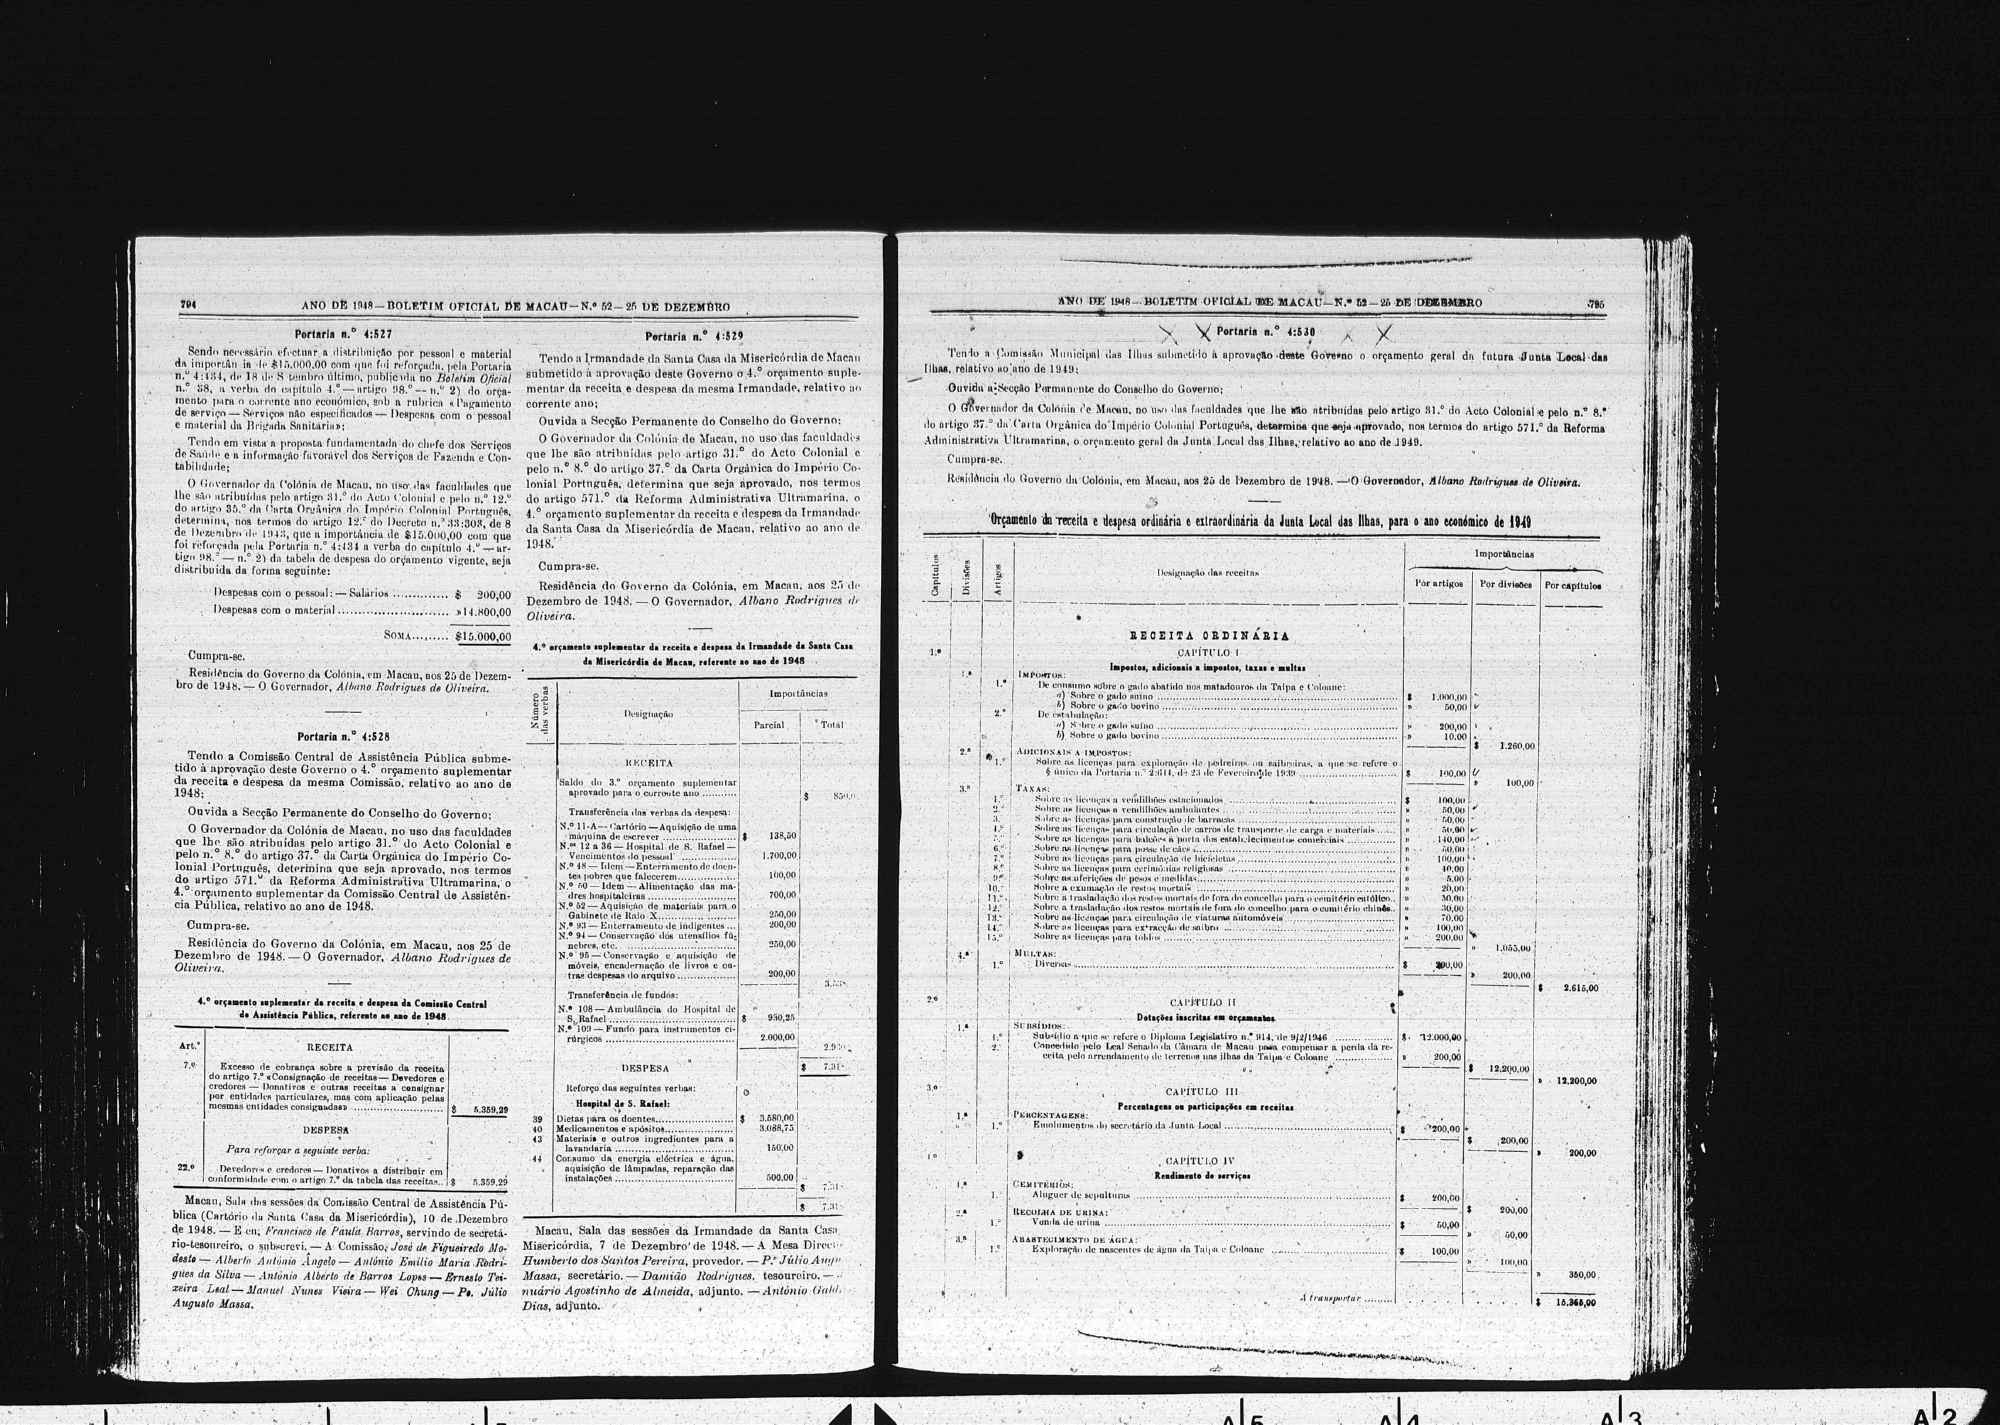 794
ANO DE 1948 — BOLETIM OFICIAL DE MACAU — N.º 52 — 25 DE DEZEMBRO
Portaria n.º 4:527
Sendo necessário efectuar a distribuição por pessoal e material
da importân ia de $15.000,00 com que foi reforçada, pela Portaria
n.º 4:434, de 18 de S tembro último, publicada no Boletim Oficial
n.º 38, a verba do capítulo 4.º — artigo 98.º — n.º 2) do orça-
mento para o corrente ano económico, sob a rubrica «Pagamento
de serviço — Serviços não especificados — Despesas com o pessoal
e material da Brigada Sanitária»;
Tendo em vista a proposta fundamentada do chefe dos Serviços
de Saúde e a informação favorável dos Serviços de Fazenda e Con-
tabilidade;
O Governador da Colónia de Macau, no uso das faculdades que
lhe são atribuídas pelo artigo 31.º do Acto Colonial e pelo n.º 12.º
do artigo 35.º da Carta Orgânica do Império Colonial Português,
determina, nos termos do artigo 12.º do Decreto n.º 33:303, de 8
de Dezembro de 1943, que a importância de $15.000,00 com que
foi reforçada pela Portaria n.º 4:434 a verba do capítulo 4.º — ar-
tigo 98.º — n.º 2) da tabela de despesa do orçamento vigente, seja
distribuída da forma seguinte:
Despesas com o pessoal: — Salários .............. $ 200,00
Despesas com o material ........................... » 14.800,00
SOMA......... $15.000,00
Cumpra-se.
Residência do Governo da Colónia, em Macau, aos 25 de Dezem-
bro de 1948. — O Governador, Albano Rodrigues de Oliveira.
Portaria n.º 4:528
Tendo a Comissão Central de Assistência Pública subme-
tido à aprovação deste Governo o 4.º orçamento suplementar
da receita e despesa da mesma Comissão, relativo ao ano de
1948;
Ouvida a Secção Permanente do Conselho do Governo;
O Governador da Colónia de Macau, no uso das faculdades
que lhe são atribuídas pelo artigo 31.º do Acto Colonial e
pelo n.º 8.º do artigo 37.º da Carta Orgânica do Império Co-
lonial Português, determina que seja aprovado, nos termos
do artigo 571.º da Reforma Administrativa Ultramarina, o
4.º orçamento suplementar da Comissão Central de Assistên-
cia Pública, relativo ao ano de 1948.
Cumpra-se.
Residência do Governo da Colónia, em Macau, aos 25 de
Dezembro de 1948. — O Governador, Albano Rodrigues de
Oliveira.
4.º orçamento suplementar da receita e despesa da Comissão Central
de Assistência Pública, referente ao ano de 1948
Art.º RECEITA
7.º Excesso de cobrança sobre a previsão da receita
do artigo 7.º «Consignação de receitas — Devedores e
credores — Donativos e outras receitas a consignar
por entidades particulares, mas com aplicação pelas
mesmas entidades consignadas» ........................ $ 5.359,29
DESPESA
Para reforçar a seguinte verba:
22.º Devedores e credores — Donativos a distribuir em
conformidade com o artigo 7.º da tabela das receitas.. $ 5.359,29
Macau, Sala das sessões da Comissão Central de Assistência Pú-
blica (Cartório da Santa Casa da Misericórdia), 10 de Dezembro
de 1948. — E eu, Francisco de Paula Barros, servindo de secretá-
rio-tesoureiro, o subscrevi. — A Comissão, José de Figueiredo Mo-
desto — Alberto António Ângelo — António Emílio Maria Rodri-
gues da Silva — António Alberto de Barros Lopes — Ernesto Tei-
xeira Leal — Manuel Nunes Vieira — Wei Chung — Pe. Júlio
Augusto Massa.
Portaria n.º 4:529
Tendo a Irmandade da Santa Casa da Misericórdia de Macau
submetido à aprovação deste Governo o 4.º orçamento suple-
mentar da receita e despesa da mesma Irmandade, relativo ao
corrente ano;
Ouvida a Secção Permanente do Conselho do Governo;
O Governador da Colónia de Macau, no uso das faculdades
que lhe são atribuídas pelo artigo 31.º do Acto Colonial e
pelo n.º 8.º do artigo 37.º da Carta Orgânica do Império Co-
lonial Português, determina que seja aprovado, nos termos
do artigo 571.º da Reforma Administrativa Ultramarina, o
4.º orçamento suplementar da receita e despesa da Irmandade
da Santa Casa da Misericórdia de Macau, relativo ao ano de
1948.
Cumpra-se.
Residência do Governo da Colónia, em Macau, aos 25 de
Dezembro de 1948. — O Governador, Albano Rodrigues de
Oliveira.
4.º orçamento suplementar da receita e despesa da Irmandade da Santa Casa
da Misericórdia de Macau, referente ao ano de 1948
Número das verbas
Designação
Importâncias
Parcial Total
RECEITA
Saldo do 3.º orçamento suplementar
aprovado para o corrente ano ........... $
Transferência das verbas da despesa:
N.º 11-A — Cartório — Aquisição de uma
máquina de escrever ................... $ 138,50
N.os 12 a 36 — Hospital de S. Rafael —
Vencimentos do pessoal ............... 1.700,00
N.º 48 — Idem — Enterramento de doen-
tes pobres que falecerem............... 100,00
N.º 50 — Idem — Alimentação das ma-
dres hospitaleiras ..................... 700,00
N.º 52 — Aquisição de materiais para o
Gabinete de Raio X.................... 250,00
N.º 93 — Enterramento de indigentes ... 200,00
N.º 94 — Conservação dos utensílios fú-
nebres, etc. ........................... 250,00
N.º 95 — Conservação e aquisição de
móveis, encadernação de livros e ou-
tras despesas do arquivo ............... 200,00
Transferência de fundos:
N.º 108 — Ambulância do Hospital de
S. Rafael ............................... $ 950,25
N.º 109 — Fundo para instrumentos ci-
rúrgicos ................................ 2.000,00
DESPESA
Reforço das seguintes verbas:
Hospital de S. Rafael:
39 Dietas para os doentes.................. $ 3.580,00
40 Medicamentos e apósitos................ 3.088,75
43 Materiais e outros ingredientes para a
lavandaria ............................. 150,00
44 Consumo da energia eléctrica e água,
aquisição de lâmpadas, reparação das
instalações ............................. 500,00
Macau, Sala das sessões da Irmandade da Santa Casa
Misericórdia, 7 de Dezembro de 1948. — A Mesa
Humberto dos Santos Pereira, provedor. — P.e Júlio
Massa, secretário. — Damião Rodrigues, tesoureiro. —
nuário Agostinho de Almeida, adjunto. — António
Dias, adjunto.
ANO DE 1948 — BOLETIM OFICIAL DE MACAU — N.º 52 — 25 DE DEZEMBRO
795
Portaria n.º 4:530
Tendo a Comissão Municipal das Ilhas submetido à aprovação deste Governo o orçamento geral da futura Junta Local das
Ilhas, relativo ao ano de 1949;
Ouvida a Secção Permanente do Conselho do Governo;
O Governador da Colónia de Macau, no uso das faculdades que lhe são atribuídas pelo artigo 31.º do Acto Colonial e pelo n.º 8.º
do artigo 37.º da Carta Orgânica do Império Colonial Português, determina que seja aprovado, nos termos do artigo 571.º da Reforma
Administrativa Ultramarina, o orçamento geral da Junta Local das Ilhas, relativo ao ano de 1949.
Cumpra-se.
Residência do Governo da Colónia, em Macau, aos 25 de Dezembro de 1948. — O Governador, Albano Rodrigues de Oliveira.
Orçamento da receita e despesa ordinária e extraordinária da Junta Local das Ilhas, para o ano económico de 1949
Capítulos Divisões Artigos
Designação das receitas
Importâncias
Por artigos Por divisões Por capítulos
RECEITA ORDINÁRIA
1.º CAPÍTULO I
Impostos, adicionais a impostos, taxas e multas
1.ª IMPOSTOS:
1.º De consumo sobre o gado abatido nos matadouros da Taipa e Coloane:
a) Sobre o gado suíno ........ $ 1.000,00
b) Sobre o gado bovino ........ » 50,00
2.º De estabulação:
a) Sobre o gado suíno ........ » 200,00
b) Sobre o gado bovino ........ » 10,00
$ 1.260,00
2.ª ADICIONAIS A IMPOSTOS:
1.º Sobre as licenças para exploração de pedreiras ou saibreiras, a que se refere o
§ único da Portaria n.º 2:611, de 23 de Fevereiro de 1939 ........ $ 100,00
» 100,00
3.ª TAXAS:
1.º Sobre as licenças a vendilhões estacionados ........ $ 100,00
2.º Sobre as licenças a vendilhões ambulantes ........ » 50,00
3.º Sobre as licenças para construção de barracas ........ » 50,00
4.º Sobre as licenças para circulação de carros de transporte de carga e materiais ..... » 50,00
5.º Sobre as licenças para balcões à porta dos estabelecimentos comerciais ........ » 140,00
6.º Sobre as licenças para posse de cães ........ » 50,00
7.º Sobre as licenças para circulação de bicicletas ........ » 100,00
8.º Sobre as licenças para cerimónias religiosas ........ » 40,00
9.º Sobre as aferições de pesos e medidas ........ » 5,00
10.º Sobre a exumação de restos mortais ........ » 20,00
11.º Sobre a trasladação dos restos mortais de fora do concelho para o cemitério católico.. » 50,00
12.º Sobre a trasladação dos restos mortais de fora do concelho para o cemitério chinês.. » 30,00
13.º Sobre as licenças para circulação de viaturas automóveis ........ » 70,00
14.º Sobre as licenças para extracção de saibro ........ » 100,00
15.º Sobre as licenças para toldos ........ » 200,00
» 1.055,00
4.ª MULTAS:
1.º Diversas ........ $ 200,00
» 200,00
$ 2.615,00
2.º CAPÍTULO II
Dotações inscritas em orçamentos
1.ª SUBSÍDIOS:
1.º Subsídio a que se refere o Diploma Legislativo n.º 914, de 9/2/1946 ........ $ 12.000,00
2.º Concedido pelo Leal Senado da Câmara de Macau para compensar a perda da re-
ceita pelo arrendamento de terrenos nas ilhas da Taipa e Coloane ........ » 200,00
$ 12.200,00
» 12.200,00
3.º CAPÍTULO III
Percentagens ou participações em receitas
1.ª PERCENTAGENS:
1.º Emolumentos do secretário da Junta Local ........ $ 200,00
$ 200,00
» 200,00
CAPÍTULO IV
Rendimento de serviços
1.ª CEMITÉRIOS:
1.º Aluguer de sepulturas ........ $ 200,00
$ 200,00
2.ª RECOLHA DE URINA:
1.º Venda de urina ........ $ 50,00
» 50,00
3.ª ABASTECIMENTO DE ÁGUA:
1.º Exploração de nascentes de água da Taipa e Coloane ........ $ 100,00
» 100,00
» 350,00
A transportar ......... $ 15.365,00
A 5
A 4
A 3
A 2